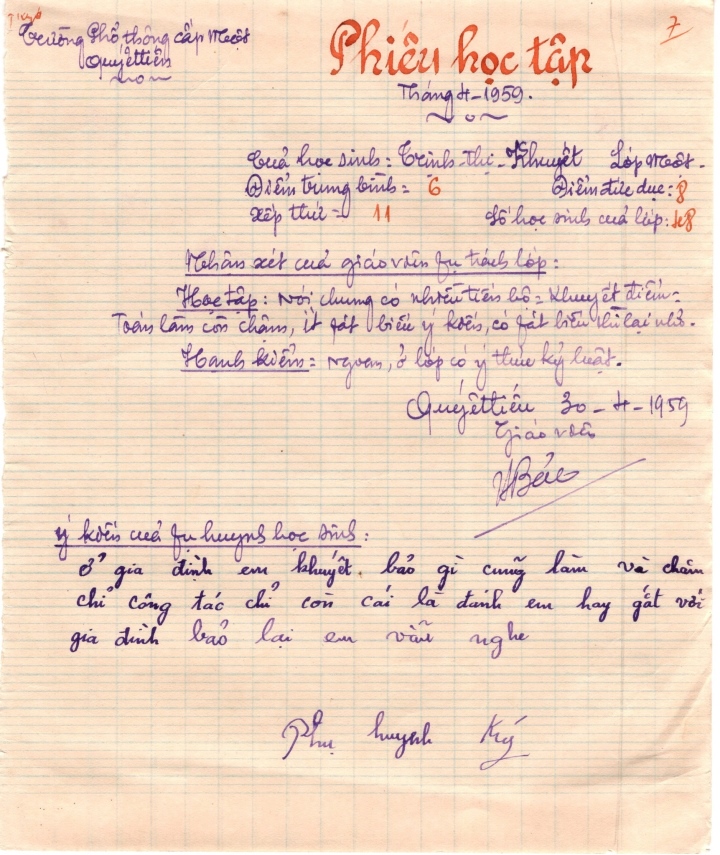 Trường Phổ thông cấp Một
Quyết tiến
7
Phiếu học tập
Tháng 4-1959.
Cuả học sinh: Trịnh-thị-Khuyết Lớp Một.
Điểm trung bình = 6 Điểm đức dục: 8
xếp thứ = 11 Số học sinh cuả lớp: 48
Nhận xét cuả giáo viên fụ trách lớp:
Học tập: Nói chung có nhiều tiến bộ = Khuyết điểm =
Toán làm còn chậm, ít fát biểu ý kiến, có fát biểu thì lại nhỏ.
Hạnh kiểm = Ngoan, ở lớp có ý thức kỷ luật.
Quyết tiến 30-4-1959
Giáo viên
ý kiến cuả fụ huynh học sinh:
ở gia đình em khuyết bảo gì cũng làm và chăm
chỉ công tác chỉ còn cái là đánh em hay gắt với
gia đình bảo lại em vẫn nghe
Phụ huynh Ký